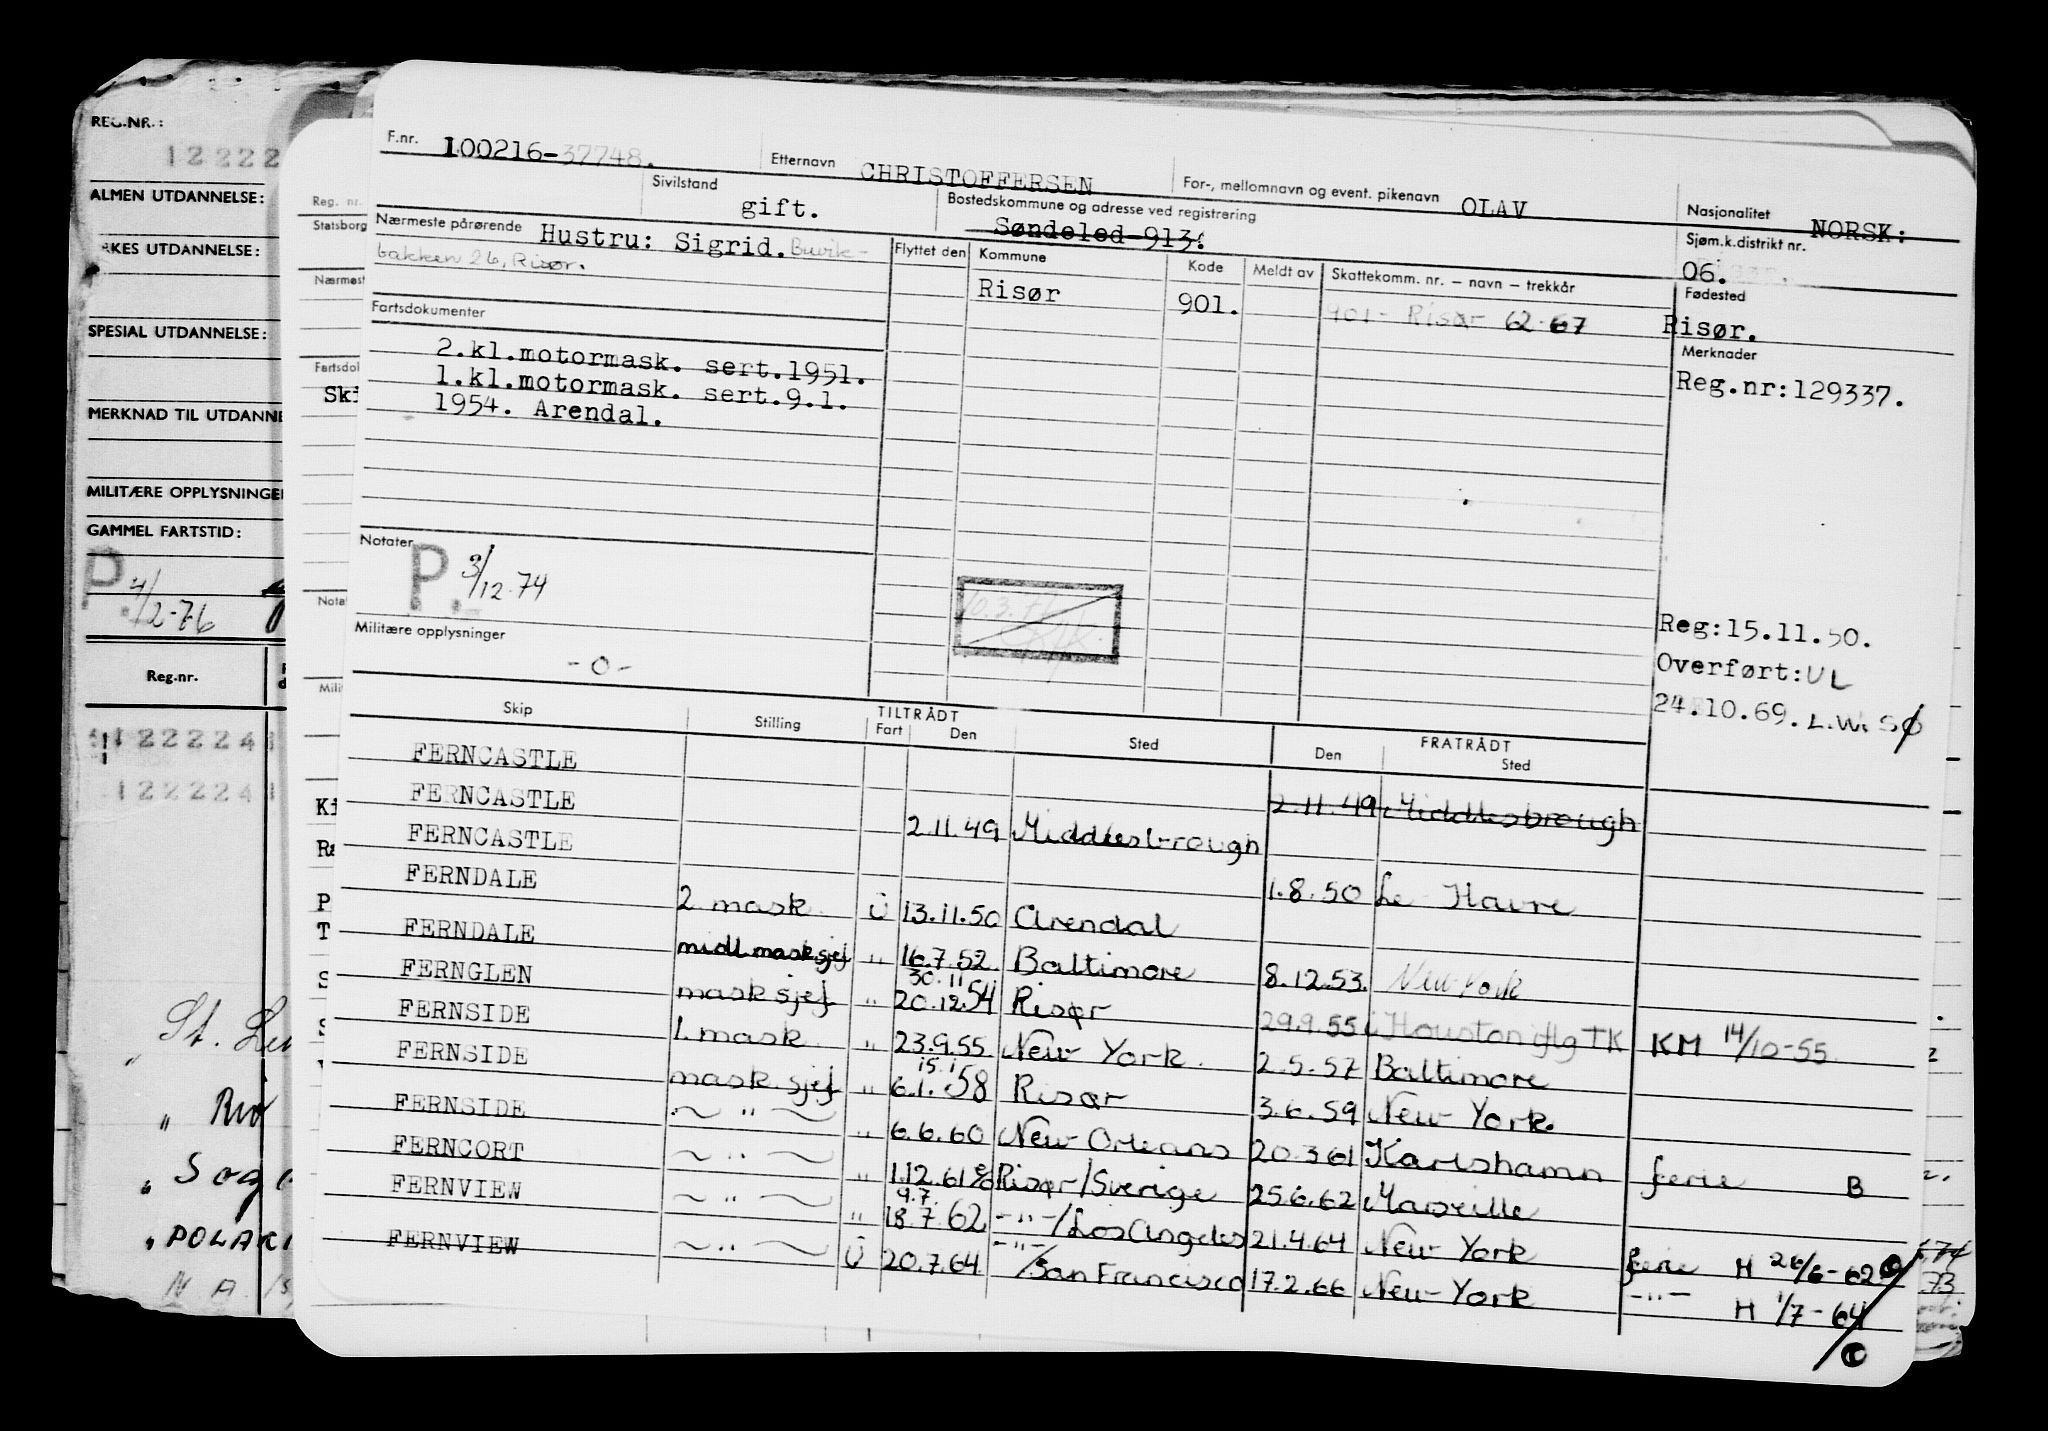 REG.NR.:
12222
ALMEN UTDANNELSE:
AKES UTDANNELSE:
SPESIAL UTDANNELSE:
MERKNAD TIL UTDANNE
MILITÆRE OPPLYSNINGE
GAMMEL FARTSTID:
P. 4/2-76
Reg.nr.
122224
122224
St. Len
" Rio
" Sog
" POLARI
Reg. nr.
Statsborg
Nærmest
Fartsdol
Ski
Notat
Milit
Ki
Ra
P
T
S
S
F.nr. 100216-37748. Etternavn CHRISTOFFERSEN For-, mellomnavn og event. pikenavn OLAV Nasjonalitet NORSK:
Sivilstand gift. Bostedskommune og adresse ved registrering Søndeled-913. Sjøm.k.distrikt nr. 06.
Nærmeste pårørende Hustru: Sigrid. Buvik-
bakken 26, Risør.
Flyttet den Kommune Kode Meldt av Skattekomm. nr. – navn – trekkår Fødested
Risør 901. 901- Risør 62-67 Risør.
Fartsdokumenter Merknader
2.kl.motormask. sert.1951. Reg.nr:129337.
1.kl.motormask. sert.9.1.
1954. Arendal.
Notater
P. 3/12-74
10.3.76
Militære opplysninger
-0-
Reg:15.11.50.
Overført:UL
24.10.69. L.W. SØ
TILTRÅDT FRATRÅDT
Skip Stilling Fart Den Sted Den Sted
FERNCASTLE 2.11.49 Middlesbrough
FERNCASTLE 2.11.49 Middlesbrough
FERNCASTLE 1.8.50 Le Havre
FERNDALE 2 mask. U 13.11.50 Arendal
FERNDALE midl mask.sjef " 16.7.52 Baltimore 8.12.53. New York
30.11
FERNGLEN mask sjef " 20.12.54 Risør 29.9.55 Houston iflg TK KM 14/10-55.
FERNSIDE 1. mask. " 23.9.55. New York. 2.5.57 Baltimore
15.1
FERNSIDE mask. sjef " 6.1.58 Risør 3.6.59 New York.
FERNSIDE ~ " ~ " 6.6.60 New Orleans 20.3.61 Karlshamn ferie B
FERNCORT ~ " ~ " 1.12.61 Risør/Sverige 25.6.62 Marseille
9.7.
FERNVIEW ~ " ~ " 18.7.62 -"-/Los Angeles 21.4.64 New York ferie H 26/6-62
FERNVIEW ~ " ~ U 20.7.64 -"-/San Francisco 17.2.66 New York -"- H 1/7-64
73